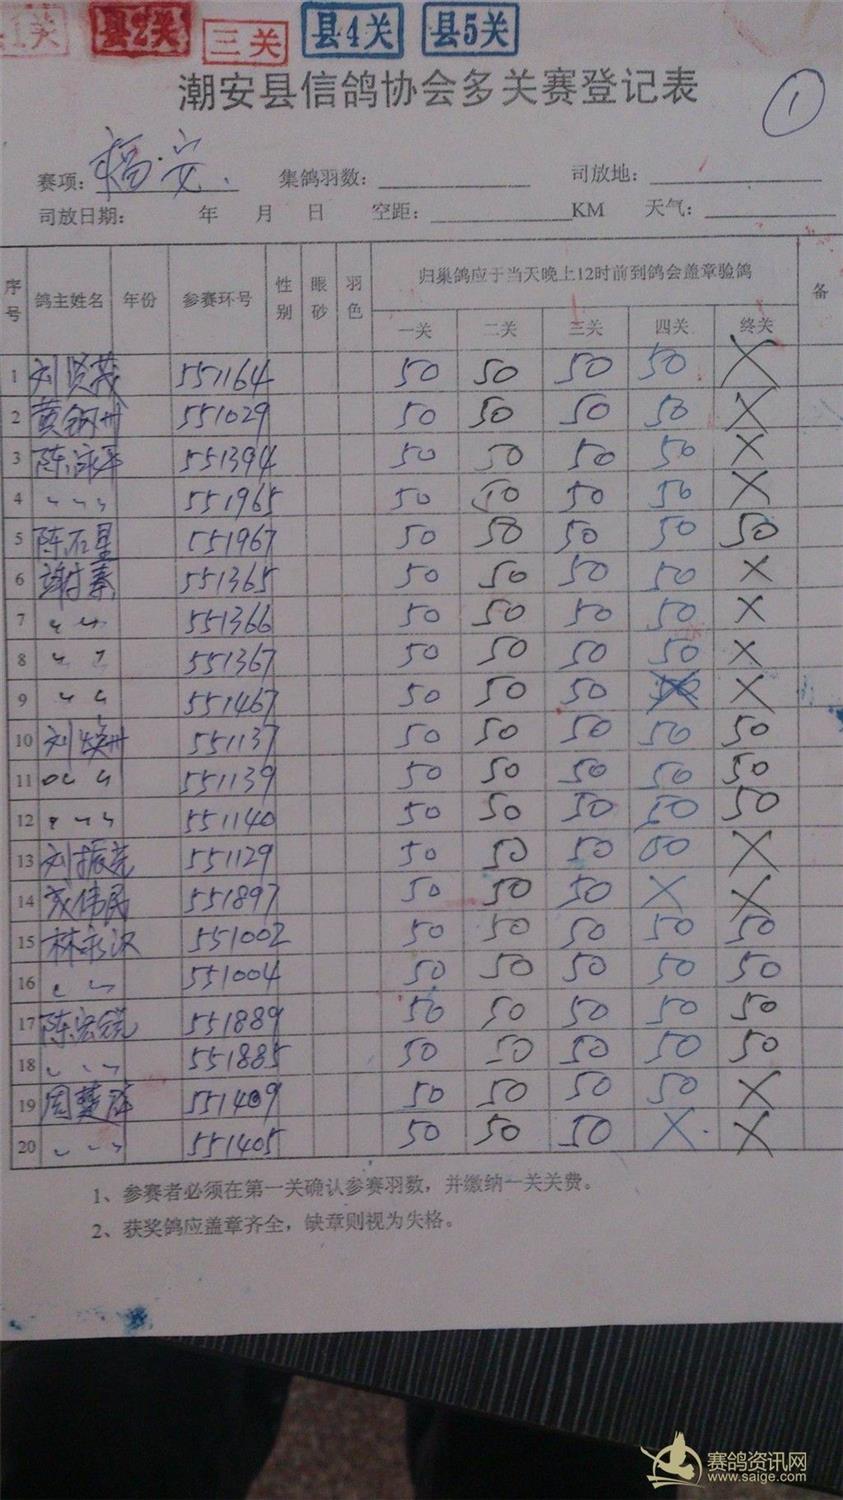 县1关 县2关 三关 县4关 县5关
潮安县信鸽协会多关赛登记表
1
赛项: 福安. 集鸽羽数: 司放地:
司放日期: 年 月 日 空距: KM 天气:
序号 鸽主姓名 年份 参赛环号 性别 眼砂 羽色 归巢鸽应于当天晚上12时前到鸽会盖章验鸽 备
一关 二关 三关 四关 终关
1 刘贤茂 551164 50 50 50 50 X
2 黄钢州 551029 50 50 50 50 X
3 陈泳平 551394 50 50 50 50 X
4 〃 〃 〃 551965 50 50 50 50 X
5 陈石星 551967 50 50 50 50 50
6 谢秦 551365 50 50 50 50 X
7 〃 〃 551366 50 50 50 50 X
8 〃 〃 551367 50 50 50 50 X
9 〃 〃 551467 50 50 50 50 X
10 刘焕州 551137 50 50 50 50 50
11 〃 〃 551139 50 50 50 50 50
12 〃 〃 〃 551140 50 50 50 50 50
13 刘振 551129 50 50 50 50 X
14 伟民 551897 50 50 50 X X
15 林永汉 551002 50 50 50 50 50
16 〃 〃 551004 50 50 50 50 50
17 陈宏锐 551889 50 50 50 50 50
18 〃 〃 〃 551885 50 50 50 50 50
19 周楚 551409 50 50 50 50 X
20 〃 〃 〃 551405 50 50 50 X. X
1、参赛者必须在第一关确认参赛羽数，并缴纳一关关费。
2、获奖鸽应盖章齐全，缺章则视为失格。
赛鸽资讯网
www.saige.com